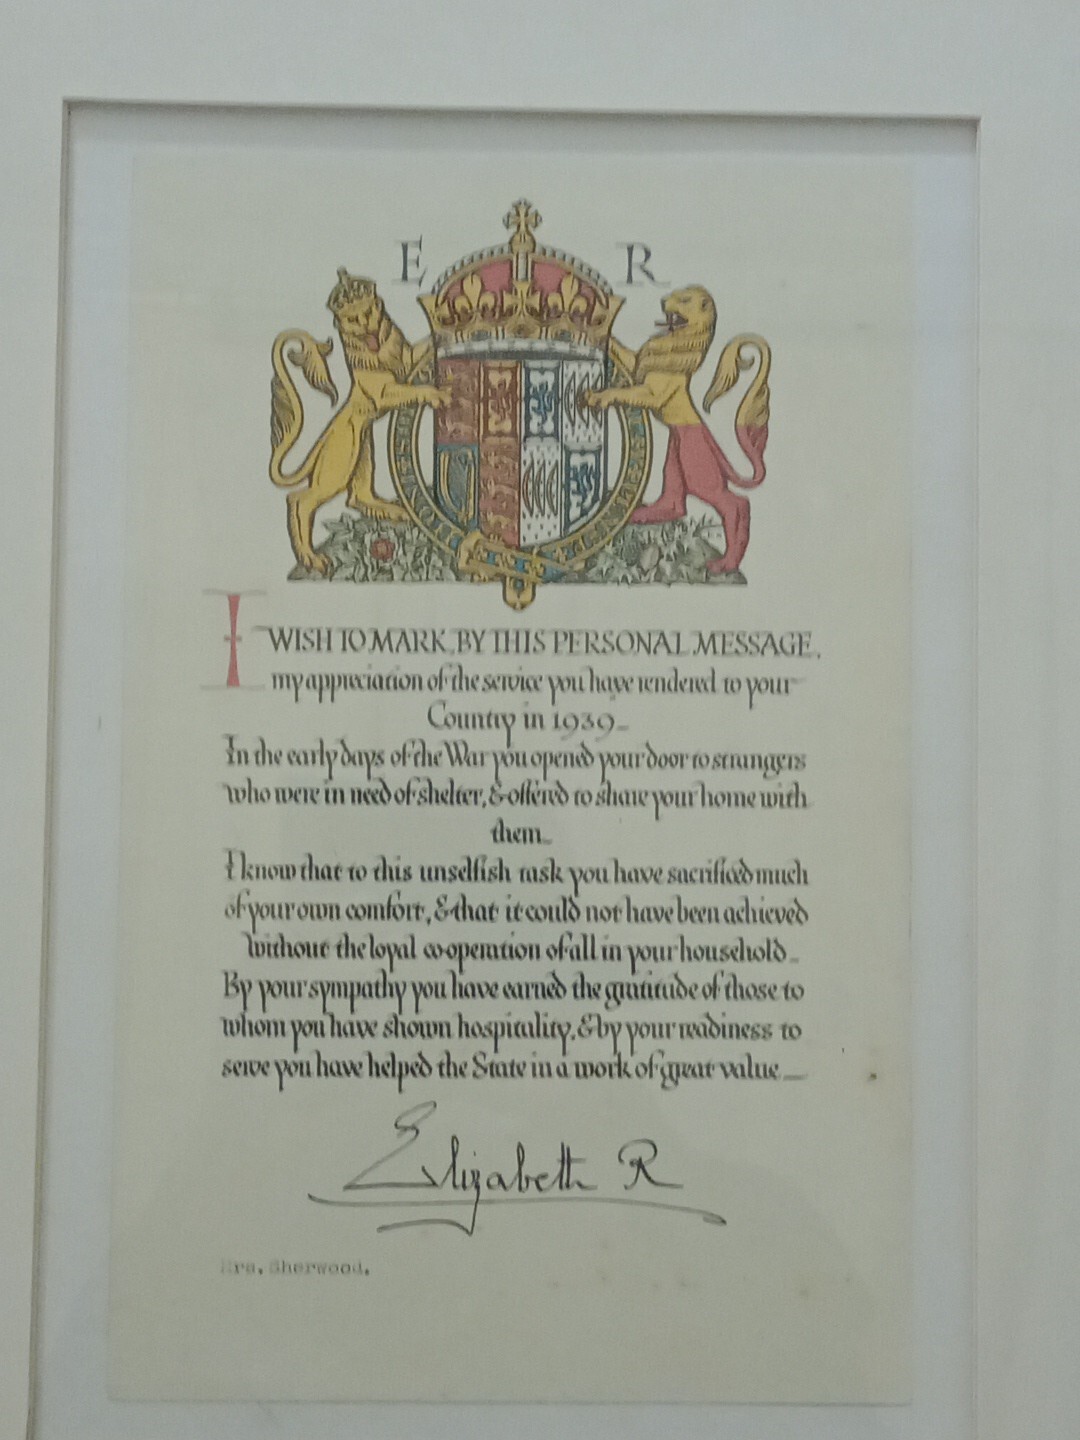 E R
I WISH TO MARK, BY THIS PERSONAL MESSAGE,
my appreciation of the service you have rendered to your
Country in 1939_
In the early days of the War you opened your door to strangers
who were in need of shelter, & offered to share your home with
them_
I know that to this unselfish task you have sacrificed much
of your own comfort, & that it could not have been achieved
without the loyal co-operation of all in your household_
By your sympathy you have earned the gratitude of those to
whom you have shown hospitality, & by your readiness to
serve you have helped the State in a work of great value_
Elizabeth R
Mrs. Sherwood.